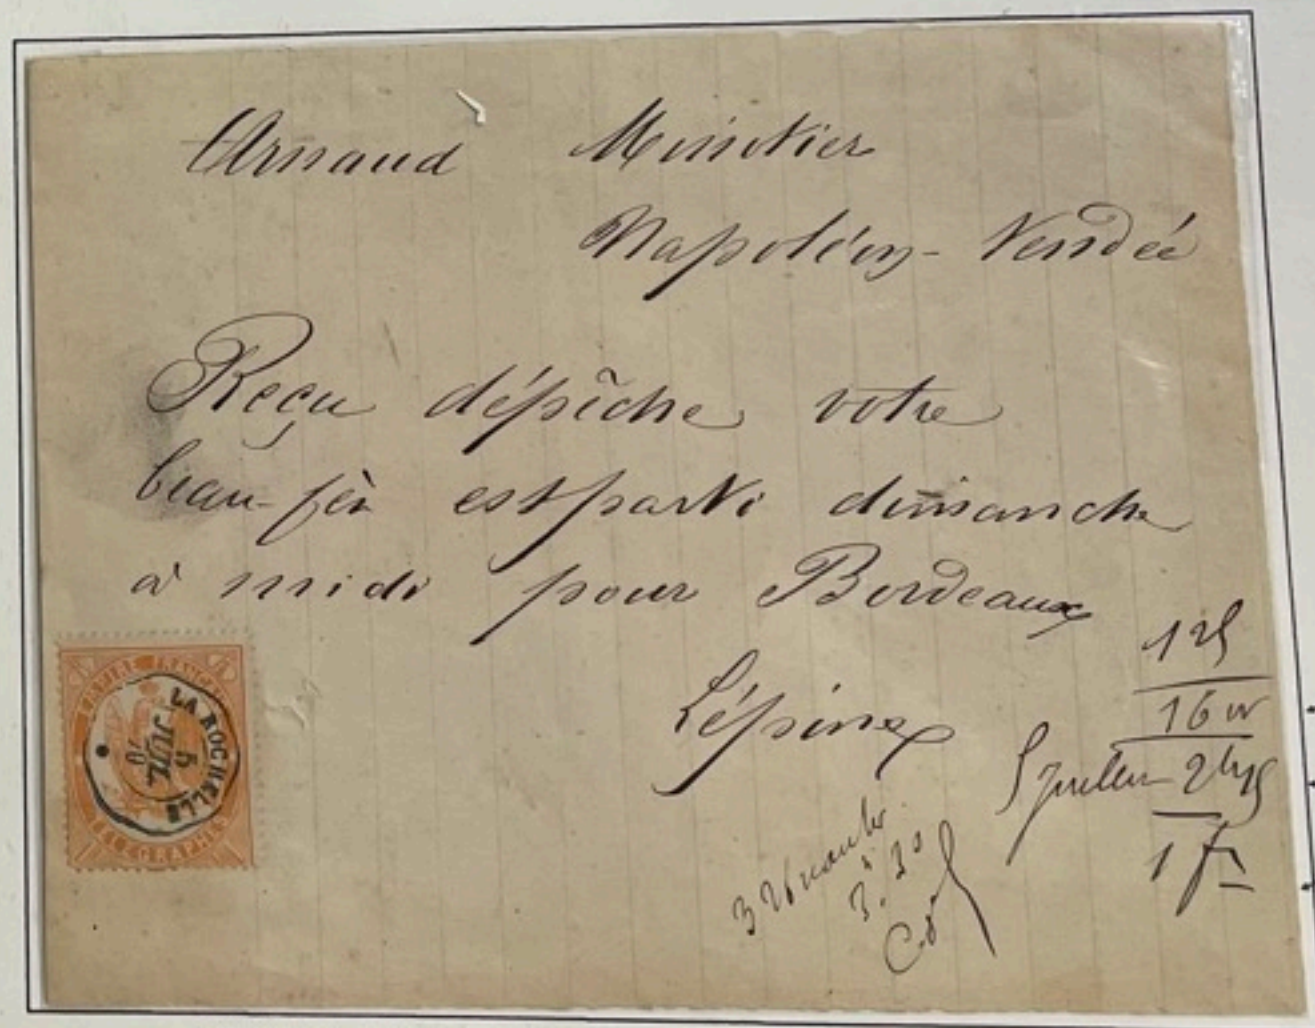 Arnaud Minotier
Napoléon-Vendée
Reçu dépêche votre
beau-fèr est parti dimanche
à midi pour Bordeaux
Lépine
125
16 w
5 juillet 2h45
1 f
3 26
3.30
EMPIRE FRANÇAIS
LA ROCHELLE
5
JUIL
70
TÉLÉGRAPHES